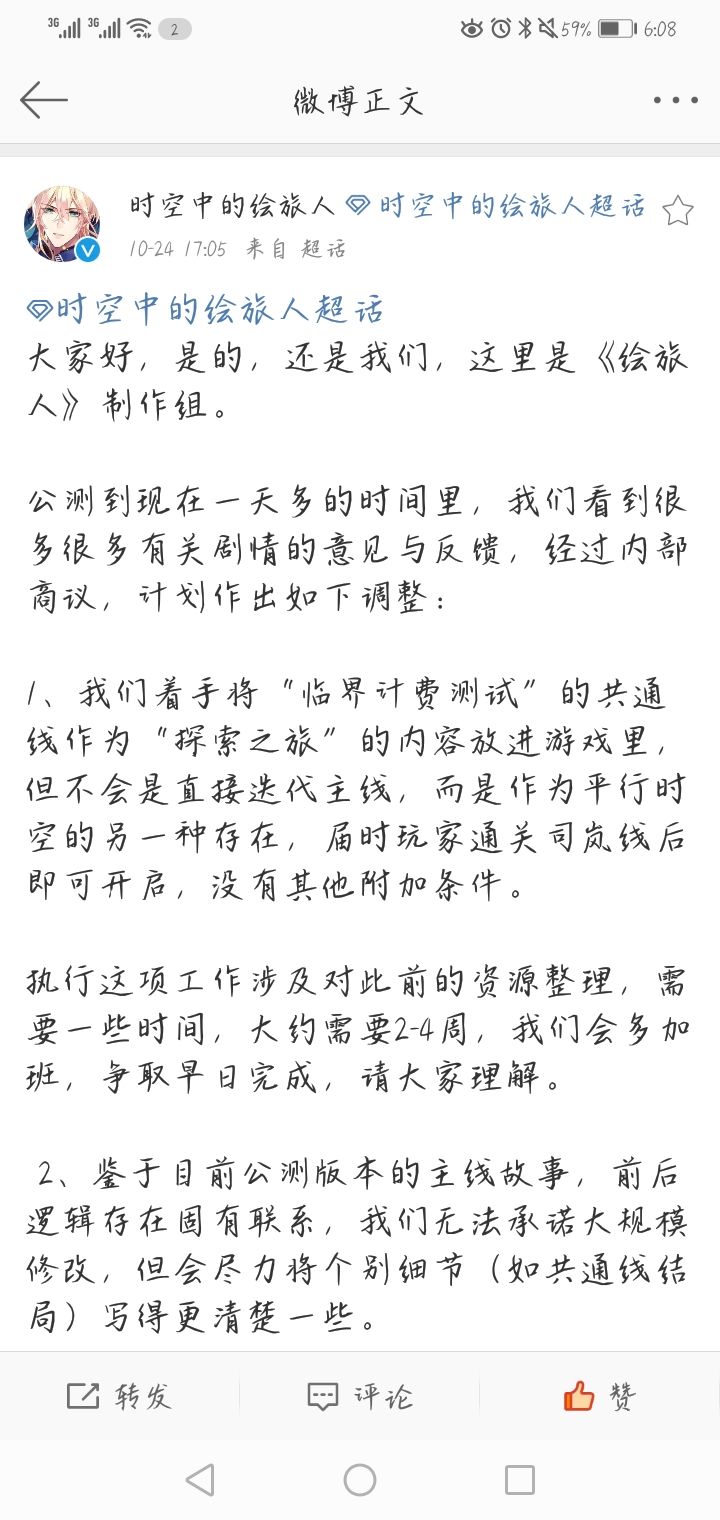 3G 3G 2 59% 6:08
微博正文
时空中的绘旅人 时空中的绘旅人超话
10-24 17:05 来自 超话
时空中的绘旅人超话
大家好，是的，还是我们，这里是《绘旅
人》制作组。
公测到现在一天多的时间里，我们看到很
多很多有关剧情的意见与反馈，经过内部
商议，计划作出如下调整：
1、我们着手将“临界计费测试”的共通
线作为“探索之旅”的内容放进游戏里，
但不会是直接迭代主线，而是作为平行时
空的另一种存在，届时玩家通关司岚线后
即可开启，没有其他附加条件。
执行这项工作涉及对此前的资源整理，需
要一些时间，大约需要2-4周，我们会多加
班，争取早日完成，请大家理解。
2、鉴于目前公测版本的主线故事，前后
逻辑存在固有联系，我们无法承诺大规模
修改，但会尽力将个别细节（如共通线结
局）写得更清楚一些。
转发 评论 赞